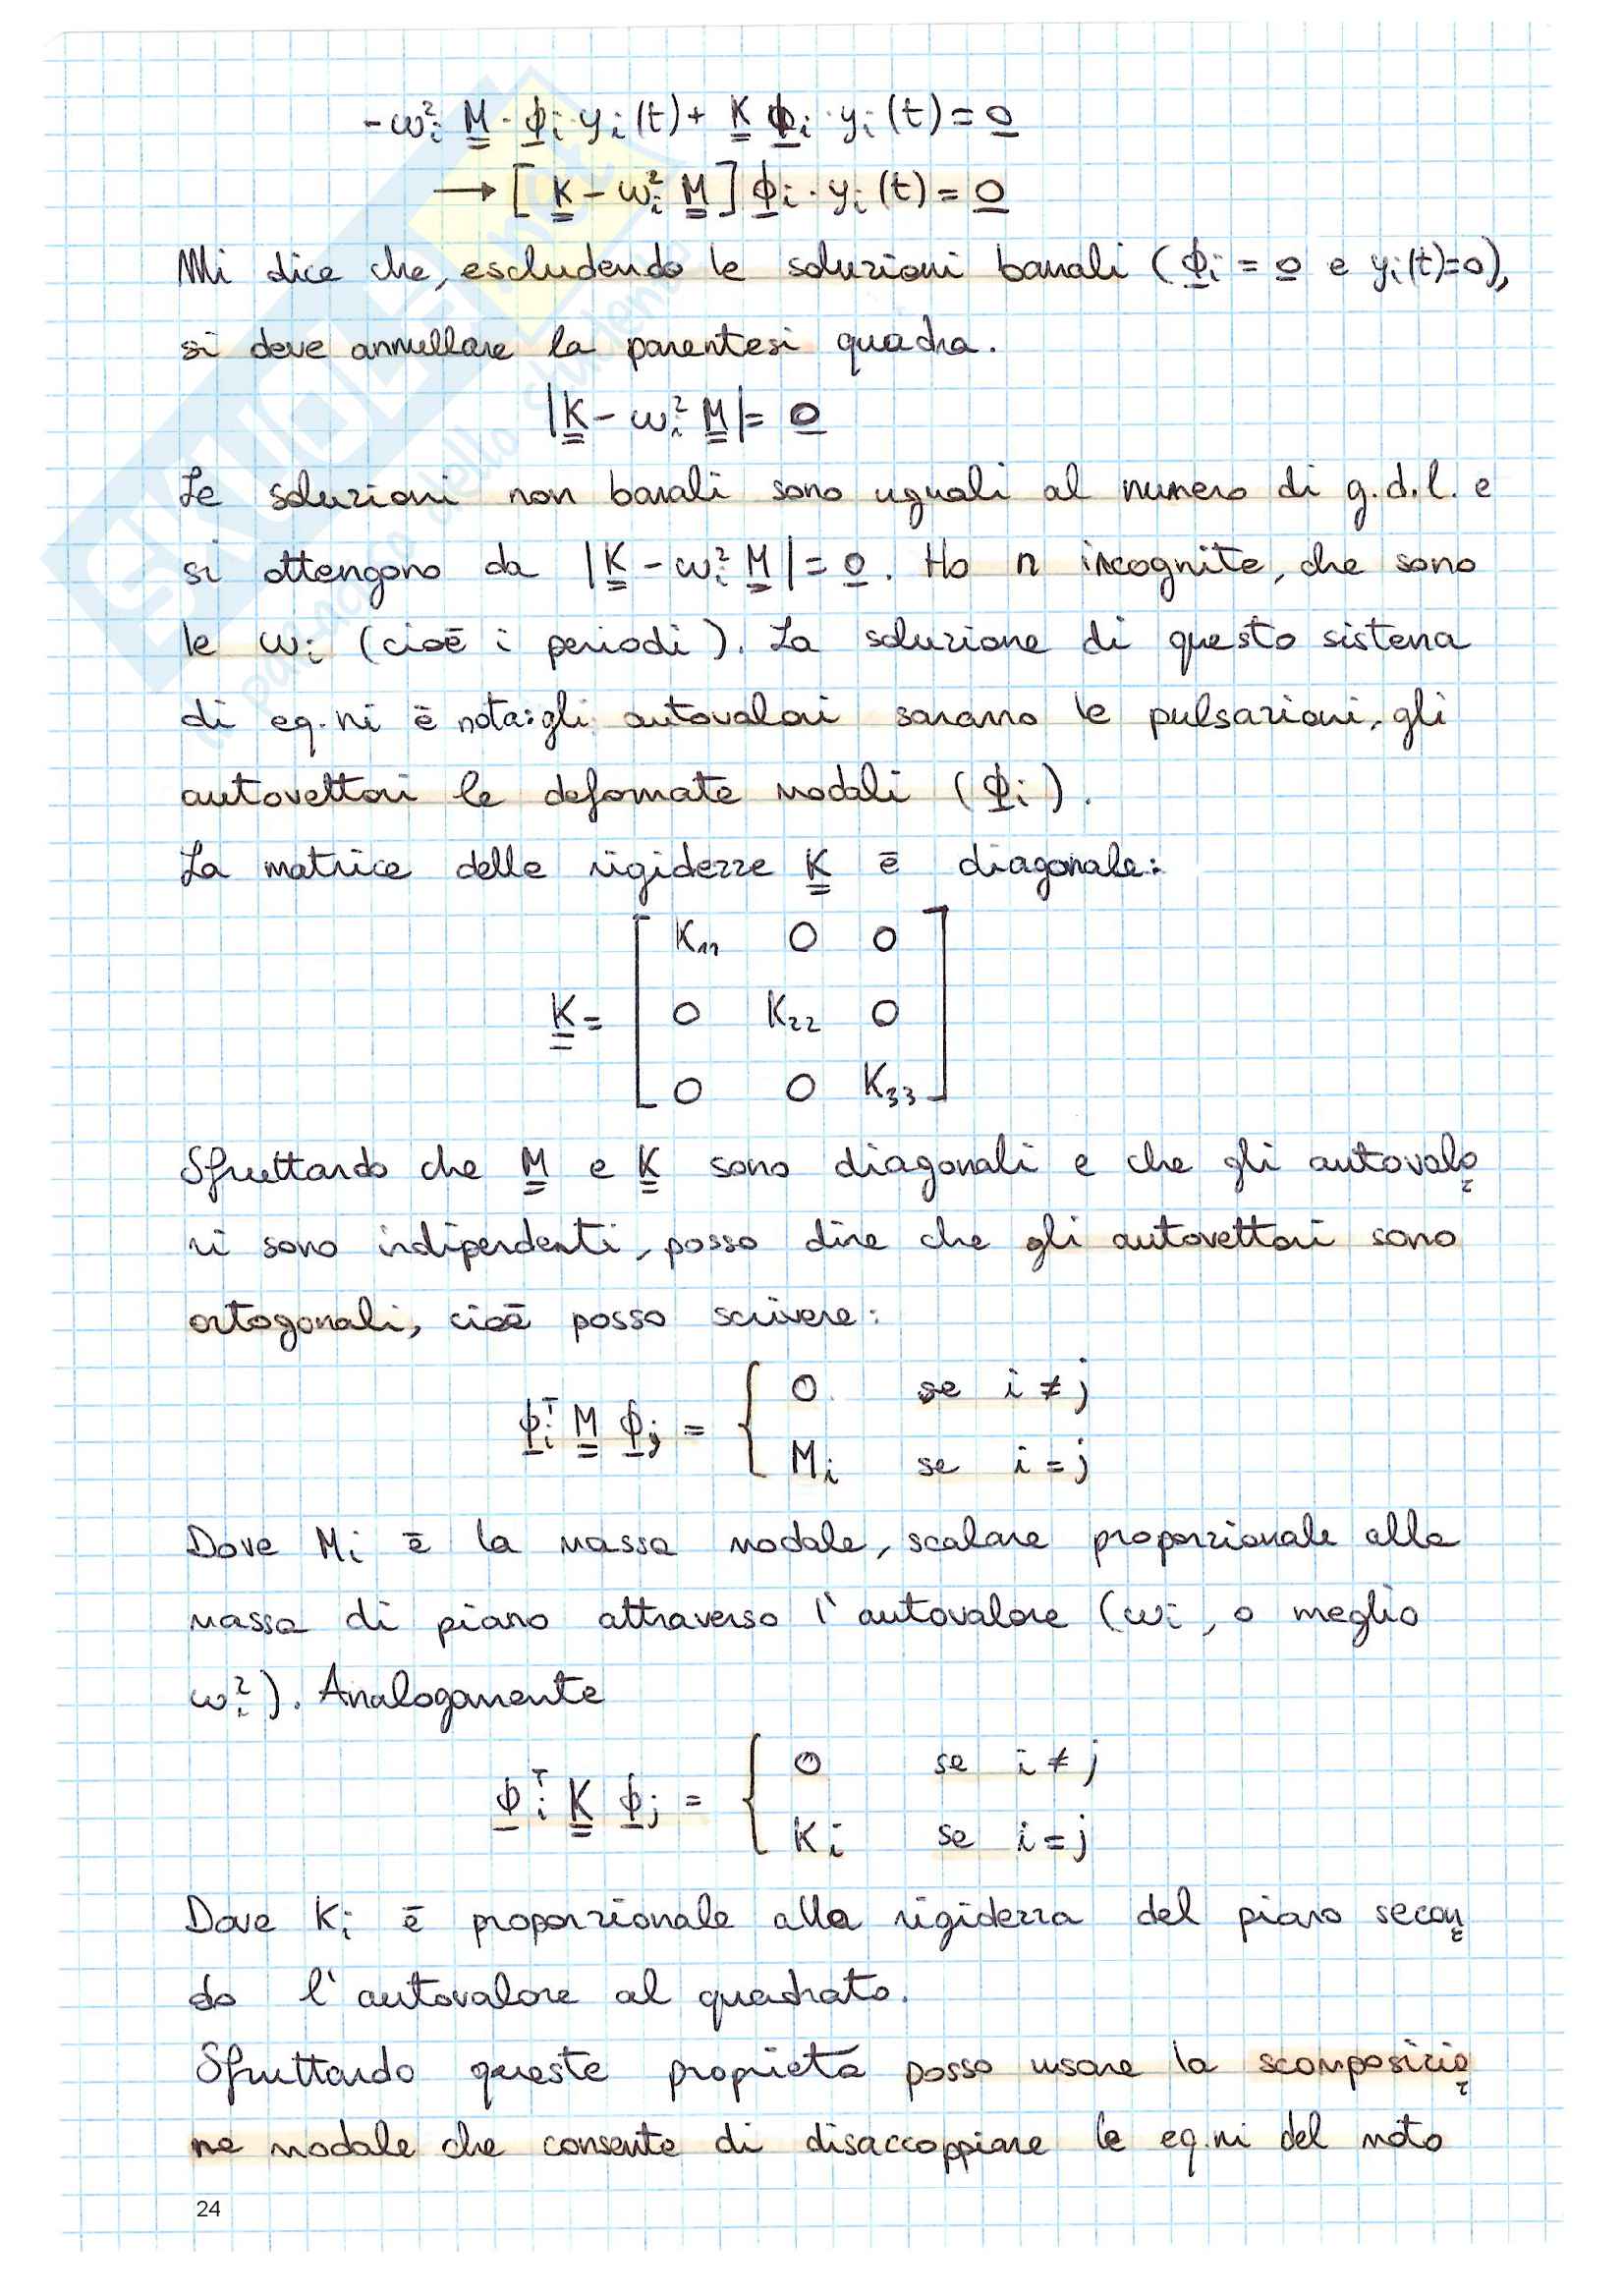 -ωᵢ² M · ϕᵢ · yᵢ(t) + K ϕᵢ · yᵢ(t) = 0
→ [K - ωᵢ² M] ϕᵢ · yᵢ(t) = 0
Mi dice che, escludendo le soluzioni banali (ϕᵢ = 0 e yᵢ(t)=0),
si deve annullare la parentesi quadra.
|K - ωᵢ² M| = 0
Le soluzioni non banali sono uguali al numero di g.d.l. e
si ottengono da |K - ωᵢ² M| = 0. Ho n incognite, che sono
le ωᵢ (cioè i periodi). La soluzione di questo sistema
di eq.ni è nota: gli autovalori saranno le pulsazioni, gli
autovettori le deformate modali (ϕᵢ).
La matrice delle rigidezze K è diagonale:
K₁₁ 0 0
K = 0 K₂₂ 0
0 0 K₃₃
Sfruttando che M e K sono diagonali e che gli autovalo
ri sono indipendenti, posso dire che gli autovettori sono
ortogonali, cioè posso scrivere:
0 se i ≠ j
ϕᵢᵀ M ϕⱼ = {
Mᵢ se i = j
Dove Mᵢ è la massa modale, scalare proporzionale alla
massa di piano attraverso l'autovalore (ωᵢ, o meglio
ωᵢ²). Analogamente
0 se i ≠ j
ϕᵢᵀ K ϕⱼ = {
Kᵢ se i = j
Dove Kᵢ è proporzionale alla rigidezza del piano secon
do l'autovalore al quadrato.
Sfruttando queste proprietà posso usare la scomposizio
ne modale che consente di disaccoppiare le eq.ni del moto
24